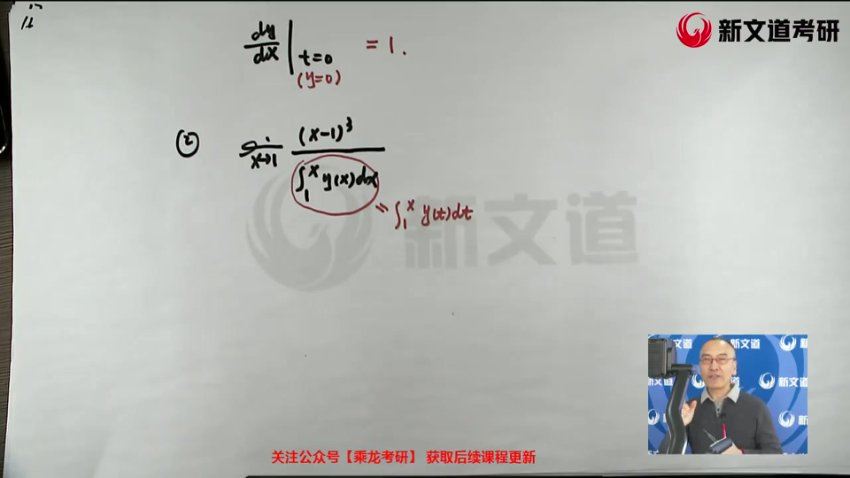 新文道考研
dy/dx | t=0 = 1.
(y=0)
② x→1 (x-1)³
∫₁ˣ y(x)dx
= ∫₁ˣ y(t)dt
新文道
新文道
新文道
新文道
新文道
关注公众号【乘龙考研】 获取后续课程更新